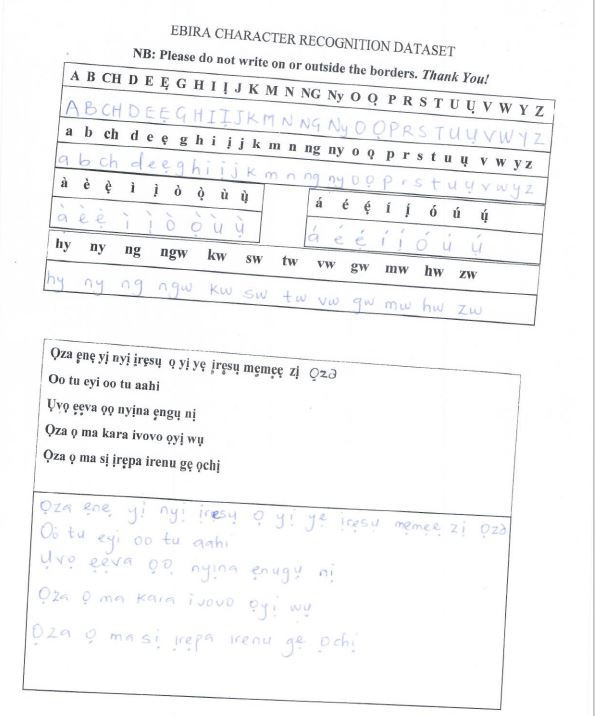 EBIRA CHARACTER RECOGNITION DATASET
NB: Please do not write on or outside the borders. Thank You!
A B CH D E Ẹ G H I Ị J K M N NG Ny O Ọ P R S T U Ụ V W Y Z
A B CH D E Ẹ G H I Ị J K M N NG Ny O Ọ P R S T U Ụ V W Y Z
a b ch d e ẹ g h i ị j k m n ng ny o ọ p r s t u ụ v w y z
a b ch d e ẹ g h i ị j k m n ng ny o ọ p r s t u ụ v w y z
à è ẹ̀ ì ị̀ ò ọ̀ ù ụ̀
á é ẹ́ í ị́ ó ú ụ́
à è ẹ̀ ì ị̀ ò ọ̀ ù ụ̀
á é ẹ́ í ị́ ó ú ụ́
hy ny ng ngw kw sw tw vw gw mw hw zw
hy ny ng ngw kw sw tw vw gw mw hw zw
Ọza ẹnẹ yị nyị ịrẹsụ ọ yị yẹ ịrẹsụ mẹmẹẹ zị Ọza
Oo tu eyi oo tu aahi
Ụvọ ẹẹva ọọ nyịna ẹngụ nị
Ọza ọ ma kara ivovo ọyị wụ
Ọza ọ ma sị ịrẹpa irenu gẹ ọchị
Ọza ẹnẹ yị nyị ịrẹsụ ọ yị yẹ ịrẹsụ mẹmẹẹ zị Ọza
Oo tu eyi oo tu aahi
Ụvọ ẹẹva ọọ nyịna ẹnugụ nị
Ọza ọ ma kara ivovo ọyị wụ
Ọza ọ ma sị ịrẹpa irenu gẹ ọchị